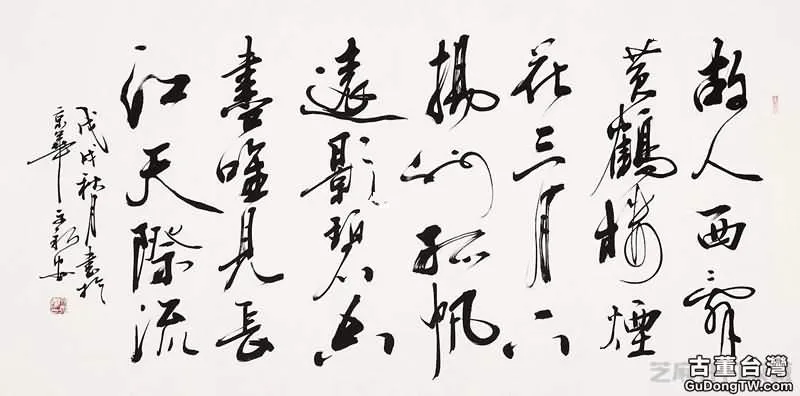 故人西辭
黄鶴樓煙
花三月下
揚州孤帆
遠影碧空
盡唯見長
江天際流
戊戌秋月書於
京華
古董台灣
GuDongTW.com